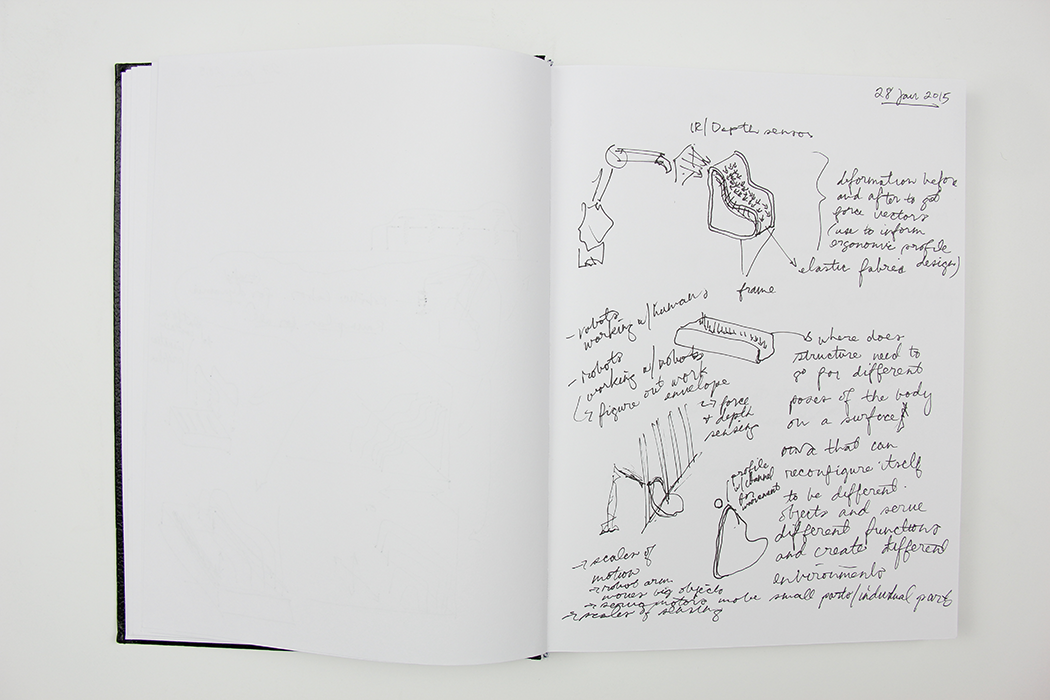 28 Jan 2015
IR/Depth sensor
deformation before
and after to get
force vectors
(use to inform
ergonomic profile
design)
elastic fabric
frame
- robots
working w/humans
- robots
working w/robots
↳ figure out work
envelope
→ force
+ depth
sensing
→ where does
structure need to
go for different
poses of the body
on a surface?
one that can
reconfigure itself
to be different
objects and serve
different functions
and create different
environments
profile
w/channel
for
movement
→ scales of
motion
→ robot arm
moves big objects
→ servo motors move small parts/individual part
→ scales of sensing